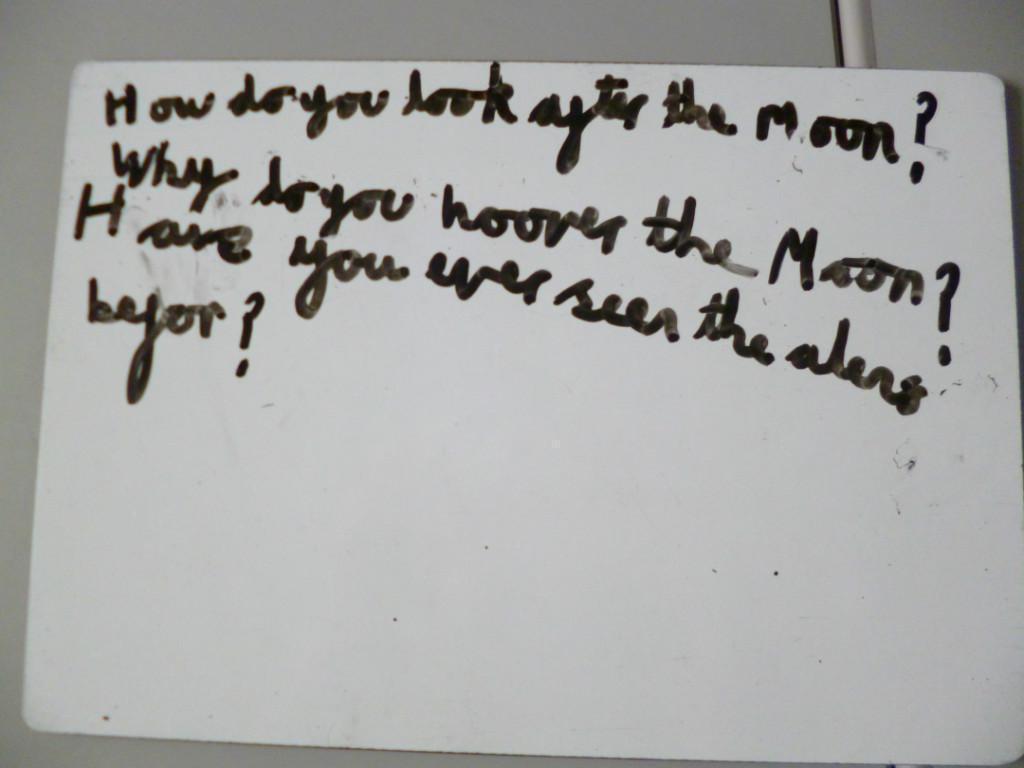 How do you look after the Moon?
Why do you hoover the Moon?
Have you ever seen the alens
befor?